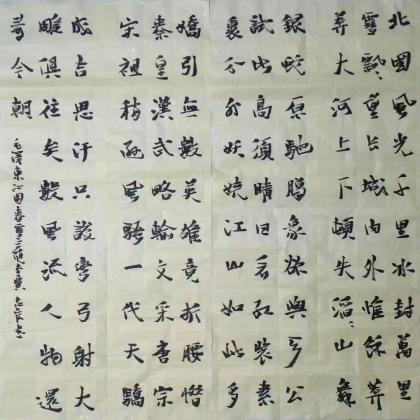 北國風光千里冰封萬里
雪飄望長城內外惟餘莽
莽大河上下頓失滔滔山舞
銀蛇原馳臘象欲與天公
試比高須晴日看紅裝素
裹分外妖嬈江山如此多
嬌引無數英雄競折腰惜
秦皇漢武略輸文采唐宗
宋祖稍遜風騷一代天驕
成吉思汗只識彎弓射大
雕俱往矣數風流人物還
看今朝
毛澤東沁園春雪